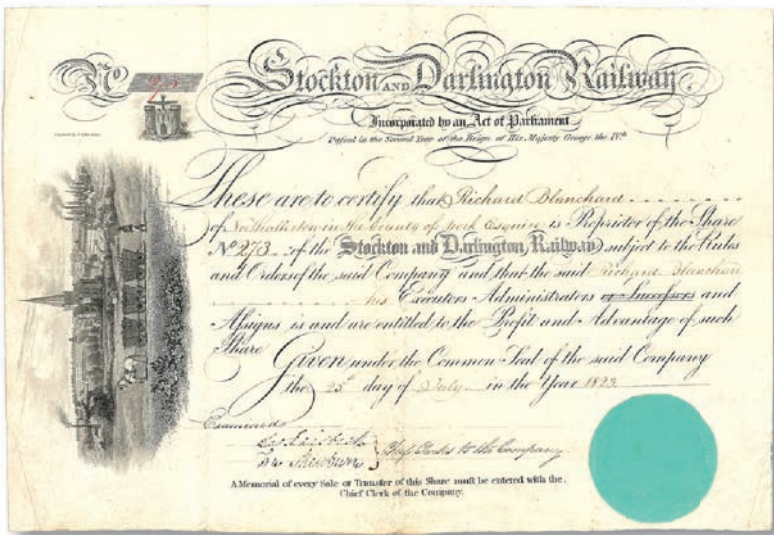 No
Stockton AND Darlington Railway
Incorporated by an Act of Parliament
Passed in the Second Year of the Reign of His Majesty George the IVth
These are to certify that Richard Blanchard
of Northallerton in the County of York Esquire is Proprietor of the Share
No 273 of the Stockton and Darlington Railway subject to the Rules
and Orders of the said Company and that the said Richard Blanchard
his Executors Administrators or Successors and
Assigns is and are entitled to the Profit and Advantage of such
Share Given under the Common Seal of the said Company
the 25th day of July in the Year 1823
Examined
Clerks to the Company
A Memorial of every Sale or Transfer of this Share must be entered with the
Chief Clerk of the Company.